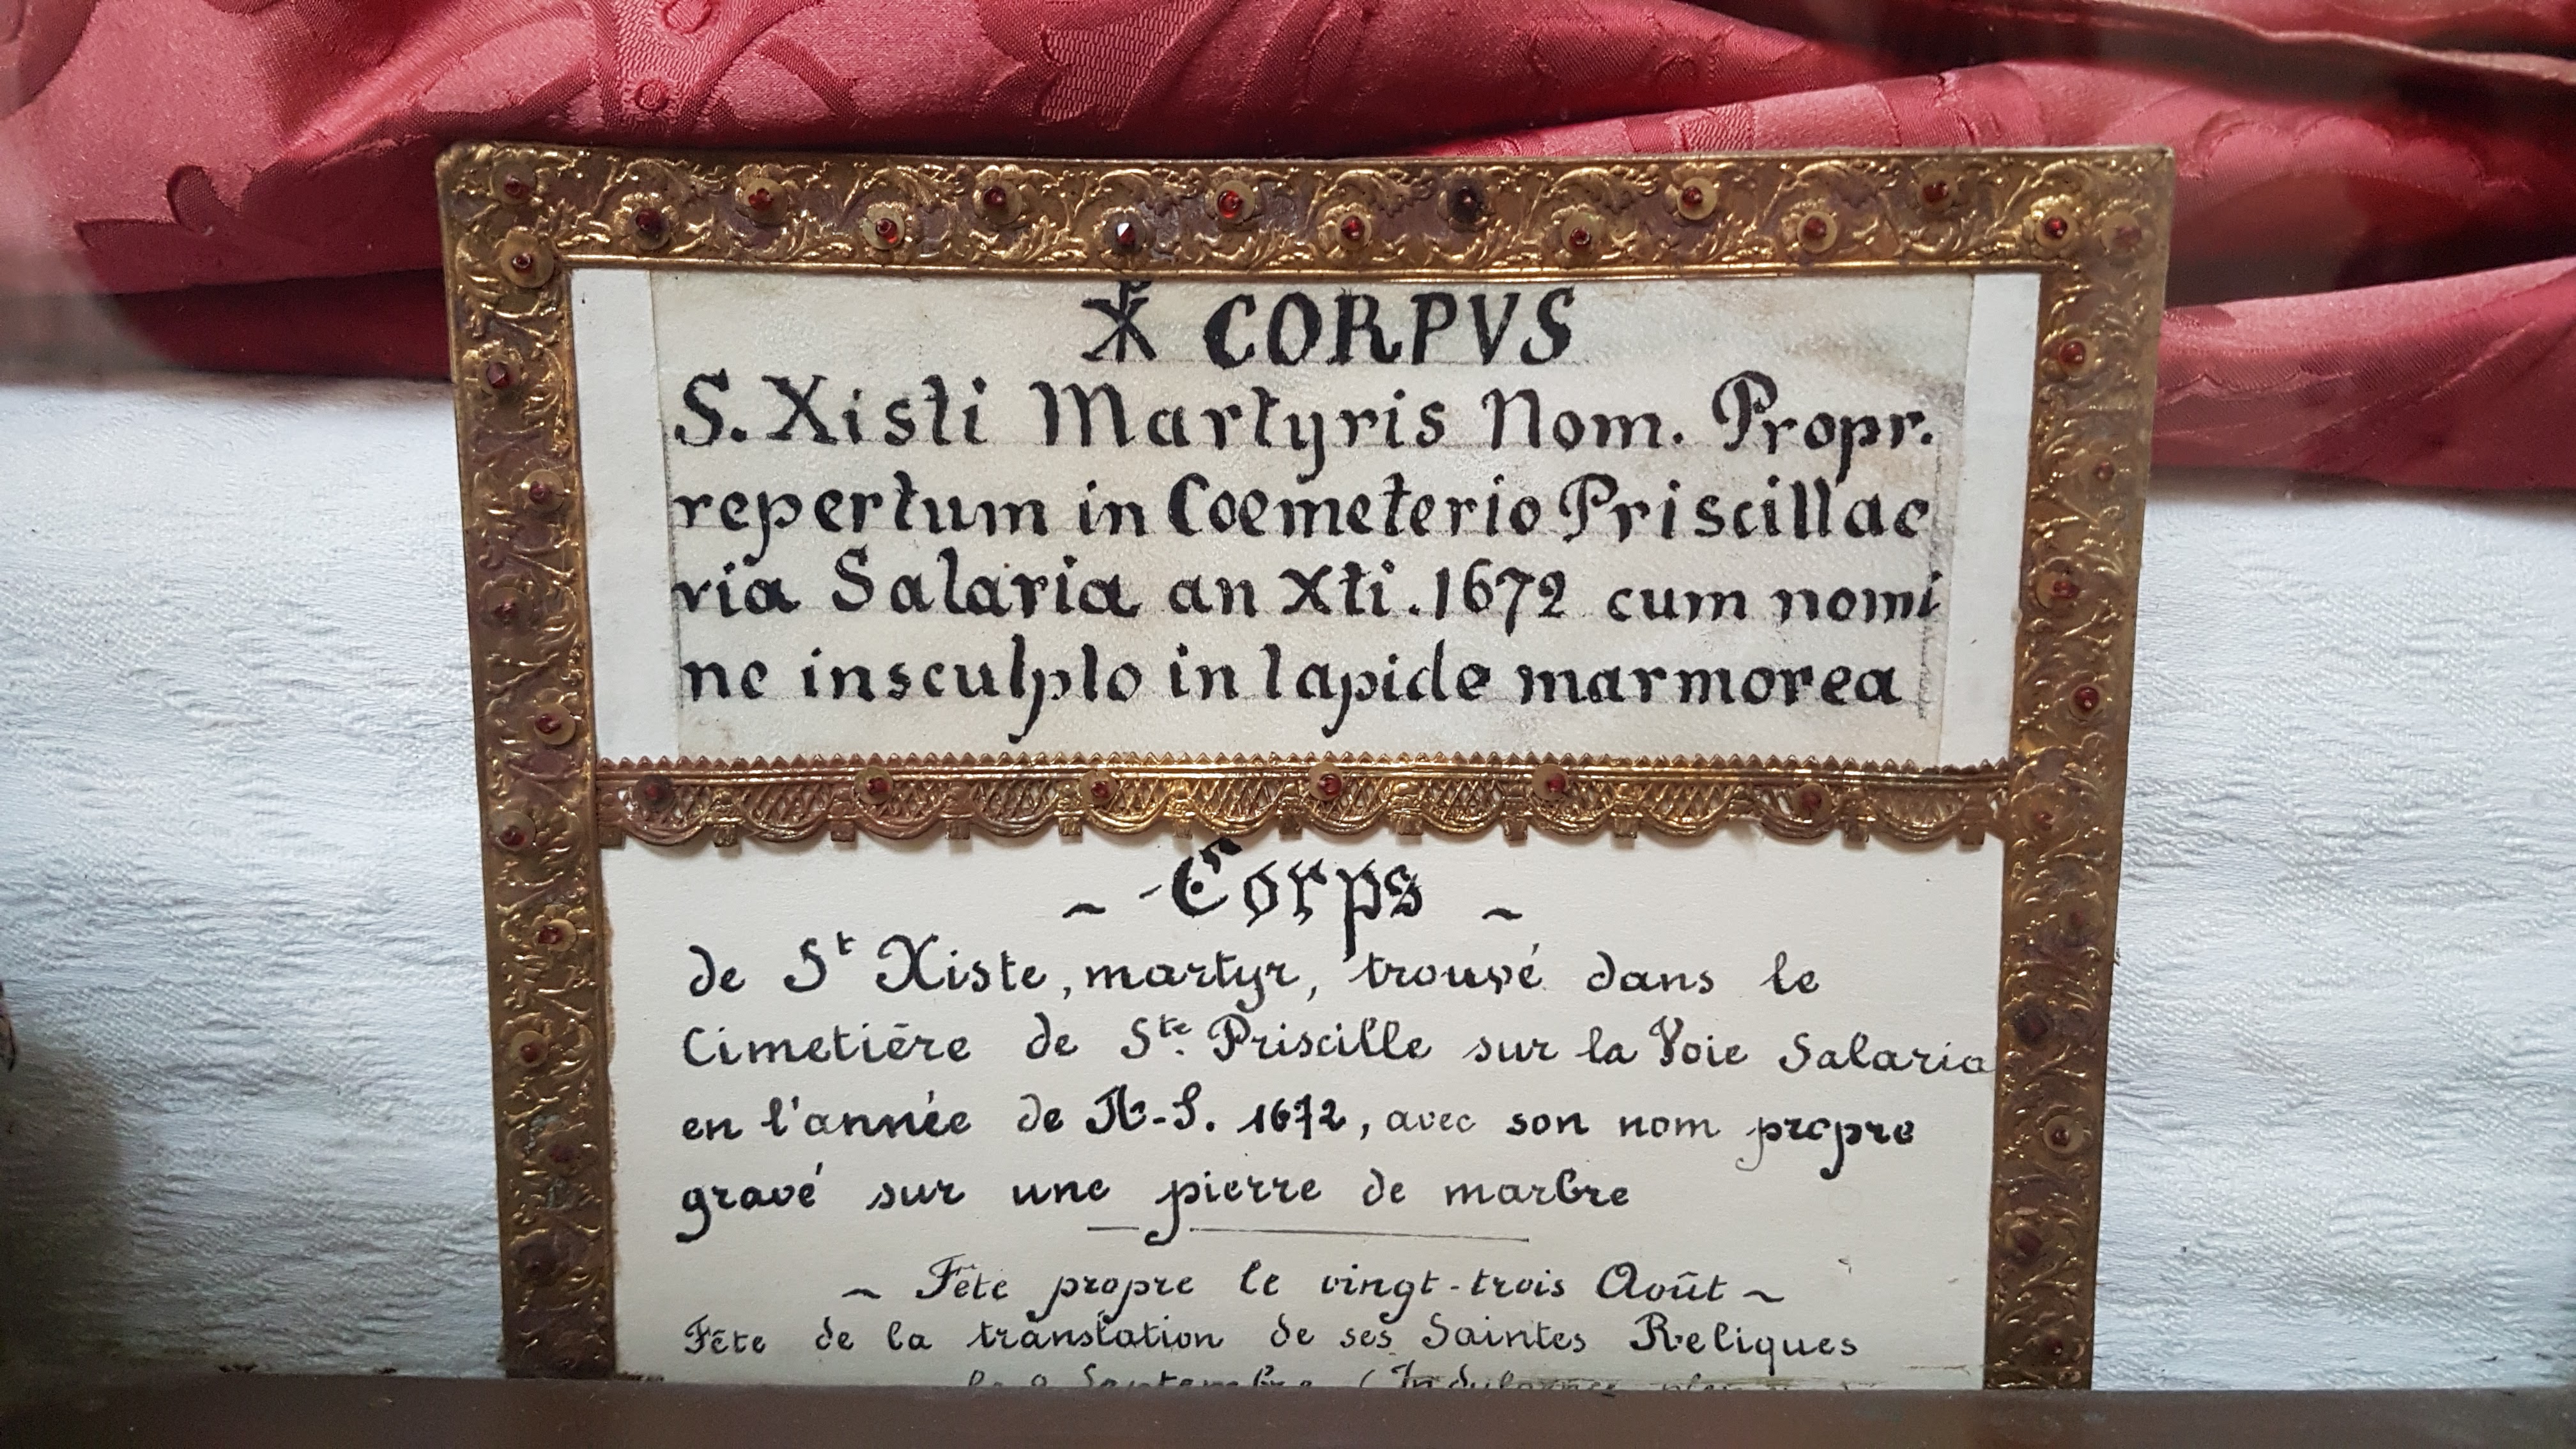 ☧ CORPVS
S. Xisti Martyris Nom. Propr.
repertum in Coemeterio Priscillae
via Salaria an Xti. 1672 cum nomi
ne insculpto in lapide marmorea
~ Corps ~
de St Xiste, martyr, trouvé dans le
Cimetière de Ste. Priscille sur la Voie Salaria
en l'année de N.-S. 1672, avec son nom propre
gravé sur une pierre de marbre
~ Fête propre le vingt-trois Août ~
Fête de la translation de ses Saintes Reliques
Septembre (Indulgence